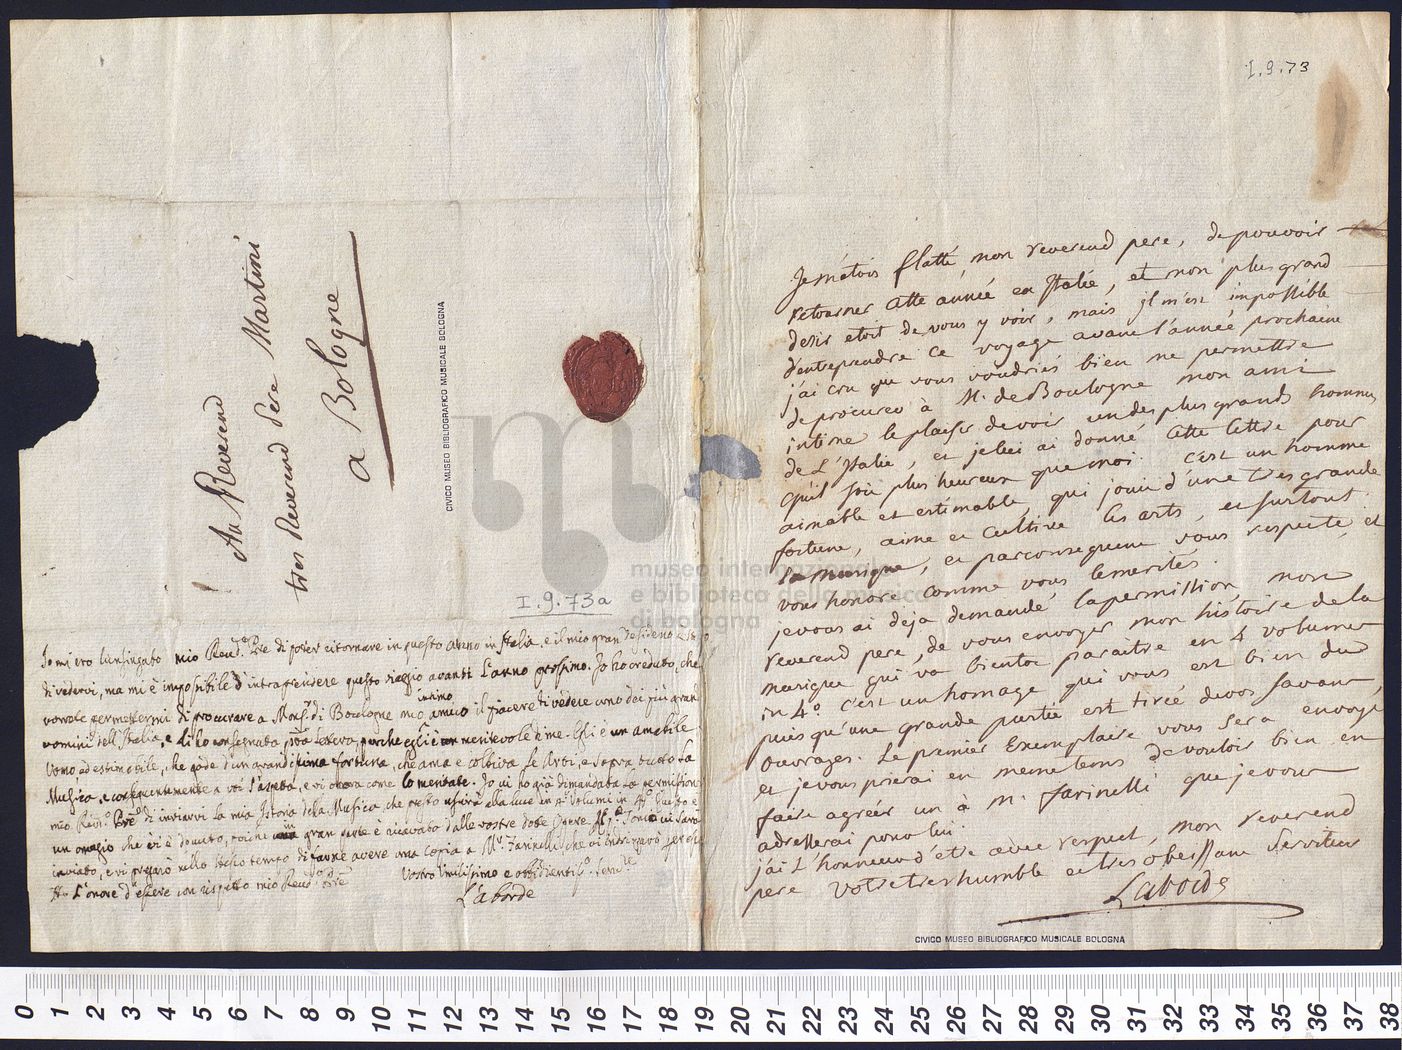 Au Reverend
tres Reverend Pere Martini
a Bologne
CIVICO MUSEO BIBLIOGRAFICO MUSICALE BOLOGNA
I.9.73a
Io mi ero lusingato mio Rev.do Pre di poter ritornare in questo anno in Italia, e il mio gran desiderio
di vedervi, ma mi è impossibile d'intraprendere questo viaggio avanti l'anno prossimo. Io ho creduto, che
vorrete permettermi di procurare a Mons.r di Boulogne mio intimo amico il piacere di vedere uno dei più gran
uomini dell'Italia, e gli ho consegnata lettera, perche egli è meritevole di me. Egli è un amabile
Uomo, ed estimabile, che gode d'un grandissima fortuna, che ama e coltiva le Arti, e sopra tutto la
Musica, e conseguentemente a voi rispetta, e vi onora come lo meritate. Io vi ho già dimandata la permissione
mio Rev.do Pre di inviarvi la mia Istoria della Musica, che presto uscirà alla luce in 4.o Volumi in 4.o Questo è
un omagio che vi è dovuto, poiche una gran parte è ricavato dalle vostre dotte Opere. Il p.o Tomo vi sarà
inviato, e vi pregarò nello stesso tempo di farne avere una Copia a M.r Farinelli che vi indirizzarò per
Ho L'onore d'essere con rispetto mio Rev.do Pre
Vostro Umilissimo e obbedientis.o Serv.re
Laborde
I.9.73
Je m'étois flatté mon reverend pere, de pouvoir
retourner cette année en Italie, et mon plus grand
desir etoit de vous y voir, mais il m'est impossible
d'entreprendre ce voyage avant l'année prochaine
j'ai cru que vous voudriés bien me permettre
de procurer à M. de Boulogne mon ami
intime le plaisir de voir un des plus grands hommes
de L'Italie, et je lui ai donné cette lettre pour
qu'il soit plus heureux que moi. C'est un homme
aimable et estimable, qui jouit d'une tres grande
fortune, aime et cultive les arts, et surtout
la musique, et par consequent vous respecte, et
vous honore comme vous le merités.
je vous ai deja demandé la permission, mon
reverend pere, de vous envoyer mon histoire de la
musique qui va bientot paraitre en 4 volumes
in 4.o c'est un homage qui vous est bien du
puis qu'une grande partie est tirée de vos savans
ouvrages. Le premier Exemplaire vous sera envoyé
et je vous prierai en meme tems de vouloir bien en
faire agréer un à M. farinelli que je vous
adresserai pour lui.
j'ai L'honneur d'etre avec respect, mon reverend
pere votre tres humble et tres obeissant serviteur
Laborde
CIVICO MUSEO BIBLIOGRAFICO MUSICALE BOLOGNA
museo internazionale
e biblioteca della musica
di bologna
0 1 2 3 4 5 6 7 8 9 10 11 12 13 14 15 16 17 18 19 20 21 22 23 24 25 26 27 28 29 30 31 32 33 34 35 36 37 38